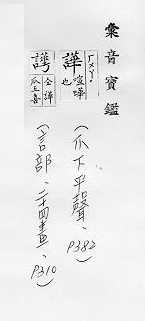 彙音寶鑑
ㄏㄨㄚˊ
譁 喧譁也
仝譁 瓜五喜
(瓜下平聲、P382)
(言部、二十四畫、P310)